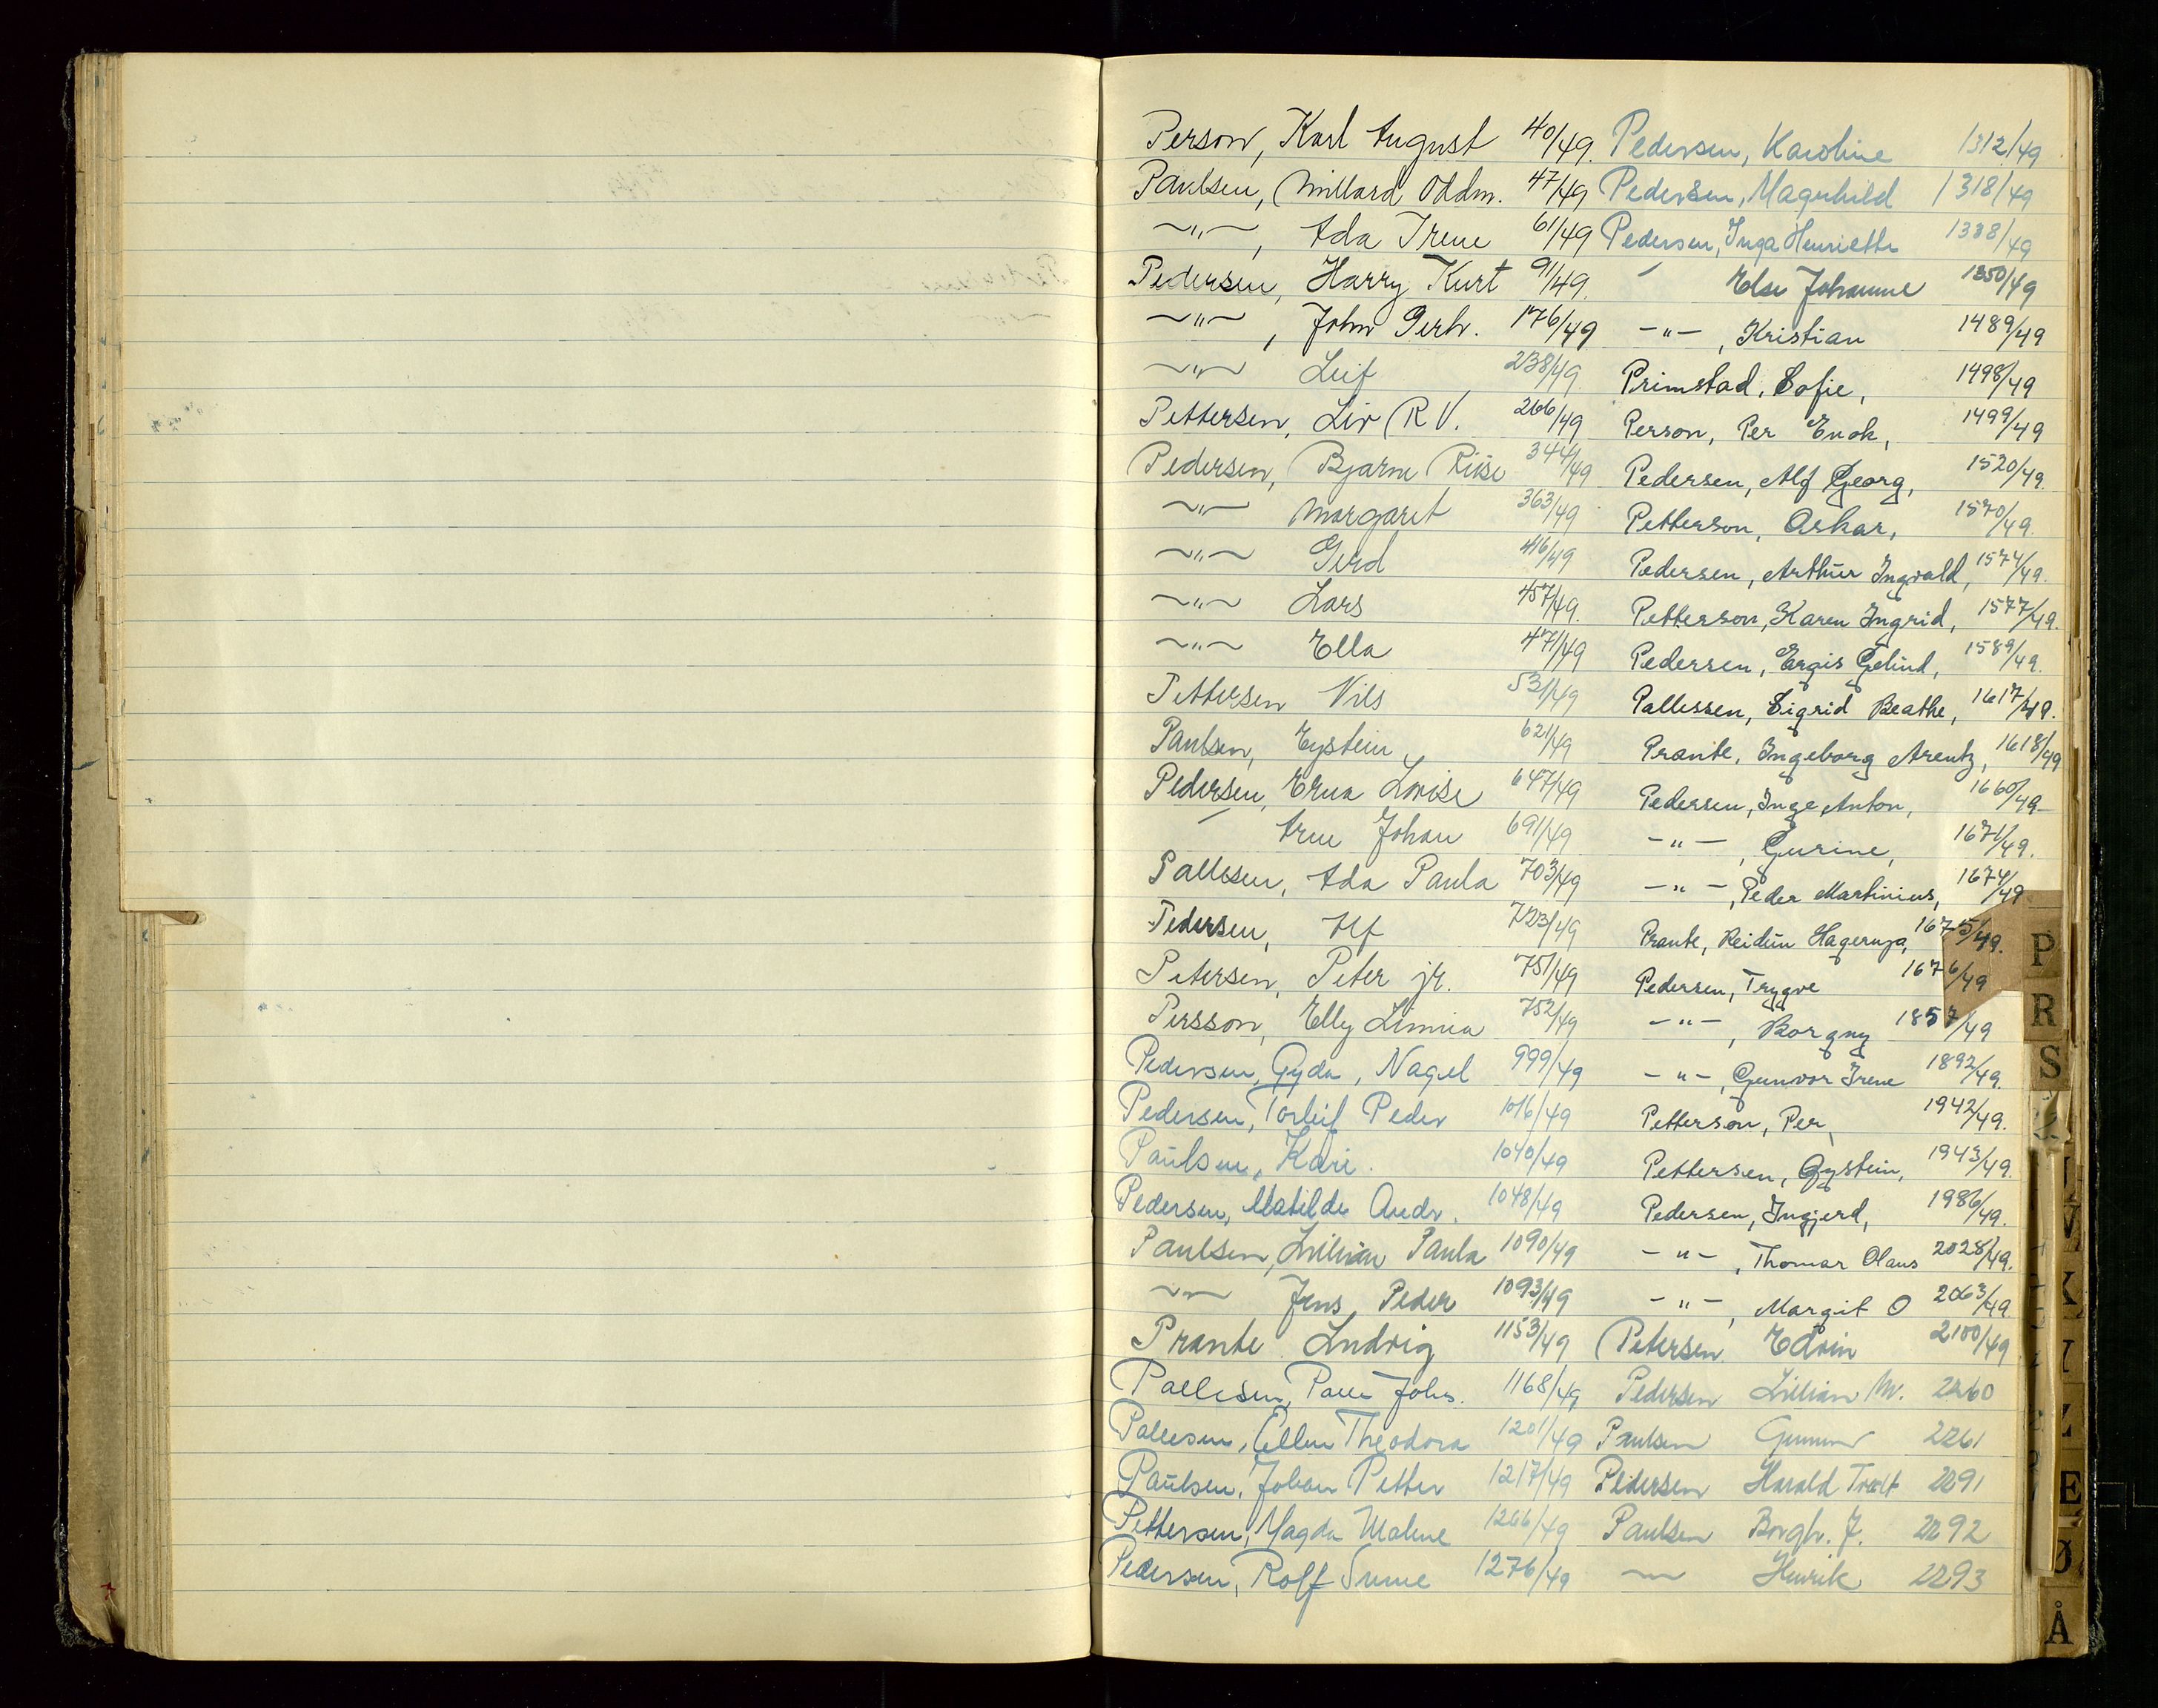 Person, Karl August 40/49.
Paulsen, Millard Oddm. 47/49
—"—, Ada Irene 61/49
Pedersen, Harry Kurt 91/49.
—"—, John Gerh. 176/49
—"— Leif 238/49
Pettersen, Liv R V. 266/49
Pedersen, Bjarne Riise 344/49
—"— Margaret 363/49
—"— Gerd 416/49
—"— Lars 457/49.
—"— Ella 471/49
Pettersen Nils 531/49
Paulsen, Eystein 621/49
Pedersen, Erna Lovise 647/49
— Arne Johan 691/49
Pallesen, Ada Paula 703/49
Pedersen, Alf 723/49
Petersen, Peter jr. 751/49
Persson, Elly Linnia 752/49
Pedersen, Gyda, Nagel 999/49
Pedersen, Torleif Peder 1016/49
Paulsen, Kari. 1040/49
Pedersen, Matilde Andr. 1048/49
Paulsen, Lillian Paula 1090/49
—"— Jens Peder 1093/49
Prante Ludvig 1153/49
Pallesen, Palle Johs. 1168/49
Pallesen, Ellen Theodora 1201/49
Paulsen, Johan Petter 1217/49
Pettersen, Magda Malene 1266/49
Pedersen, Rolf Sune 1276/49
Pedersen, Karoline 1312/49
Pedersen, Magnhild 1318/49
Pedersen, Inga Henriette 1338/49
— Else Johanne 1350/49
—"—, Kristian 1489/49
Primstad, Sofie, 1498/49
Person, Per Enok, 1499/49
Pedersen, Alf Georg, 1520/49.
Petterson, Oskar, 1570/49.
Pedersen, Arthur Ingvald, 1574/49.
Petterson, Karen Ingrid, 1577/49.
Pedersen, Ergis Gelind, 1589/49.
Pallessen, Sigrid Beathe, 1617/49.
Prante, Ingeborg Arentz, 1618/49
Pedersen, Inge Anton, 1660/49
—"—, Gurine, 1671/49.
—"—, Peder Martinius, 1674/49
Prante, Reidun Hagerupa, 1675/49.
Pedersen, Trygve 1676/49
—"—, Borgny 1857/49
—"—, Gunvor Irene 1892/49.
Petterson, Per, 1942/49.
Pettersen, Øystein, 1943/49.
Pedersen, Ingjerd, 1986/49.
—"—, Thomas Olaus 2028/49.
—"—, Margit O 2063/49.
Petersen Edvin 2100/49
Pedersen Lillian M. 2260
Paulsen Gunnar 2261
Pedersen Harald Tvelt 2291
Paulsen Borgh. J. 2292
—"— Henrik 2293
P
R
S
K
E
Ø
Å